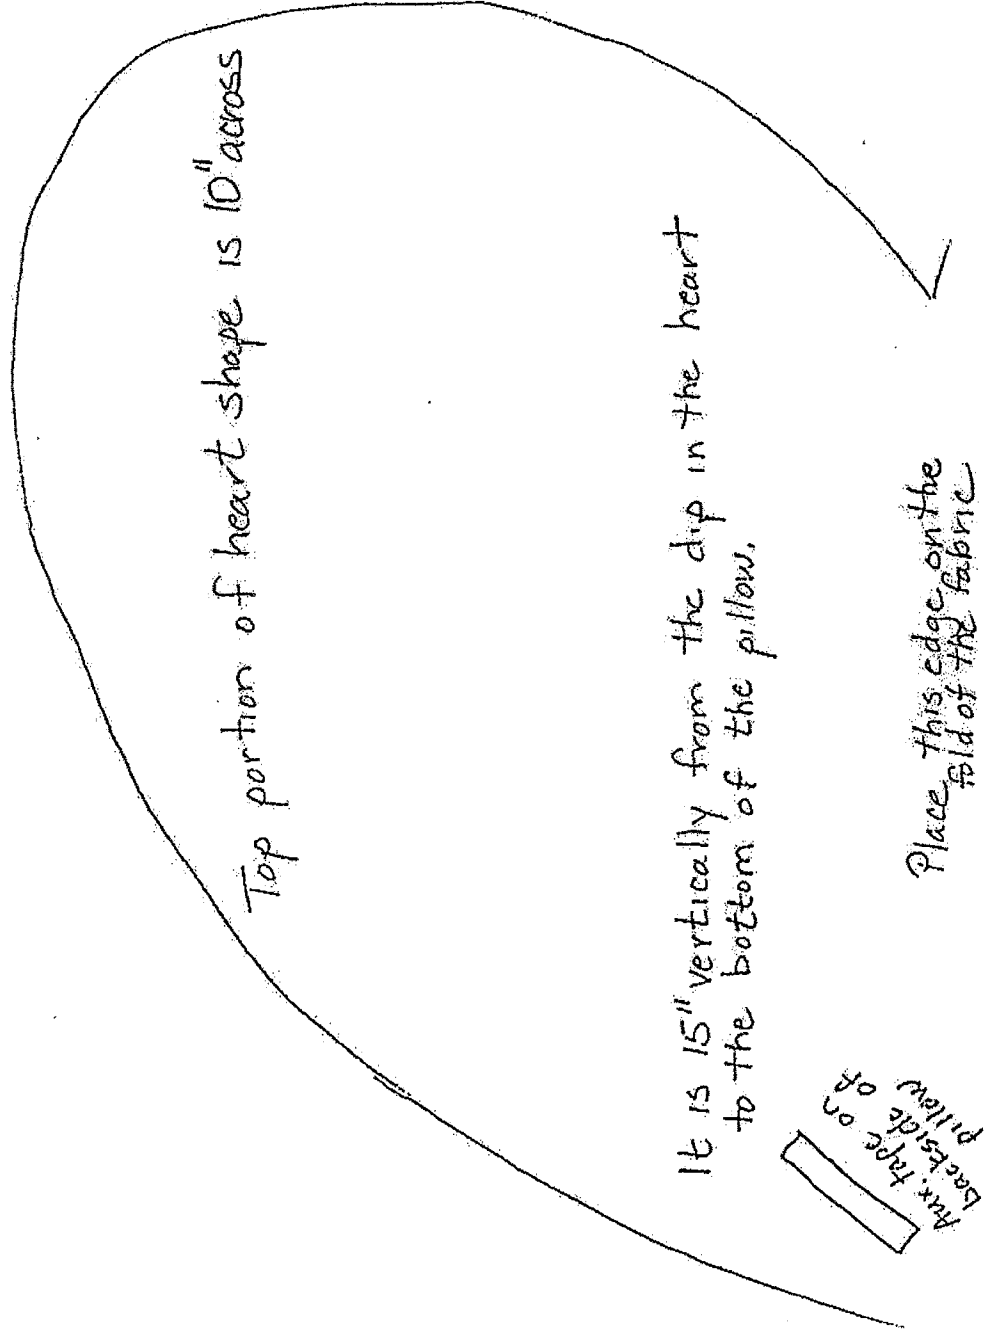 Top portion of heart shape is 10" across
It is 15" vertically from the dip in the heart
to the bottom of the pillow.
Place this edge on the
fold of the fabric
Aux. tape on
backside of
pillow